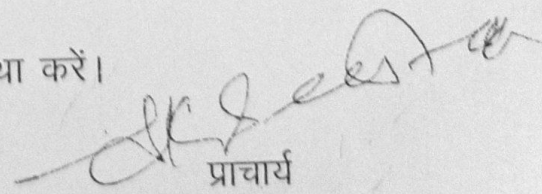 था करें।
प्राचार्य